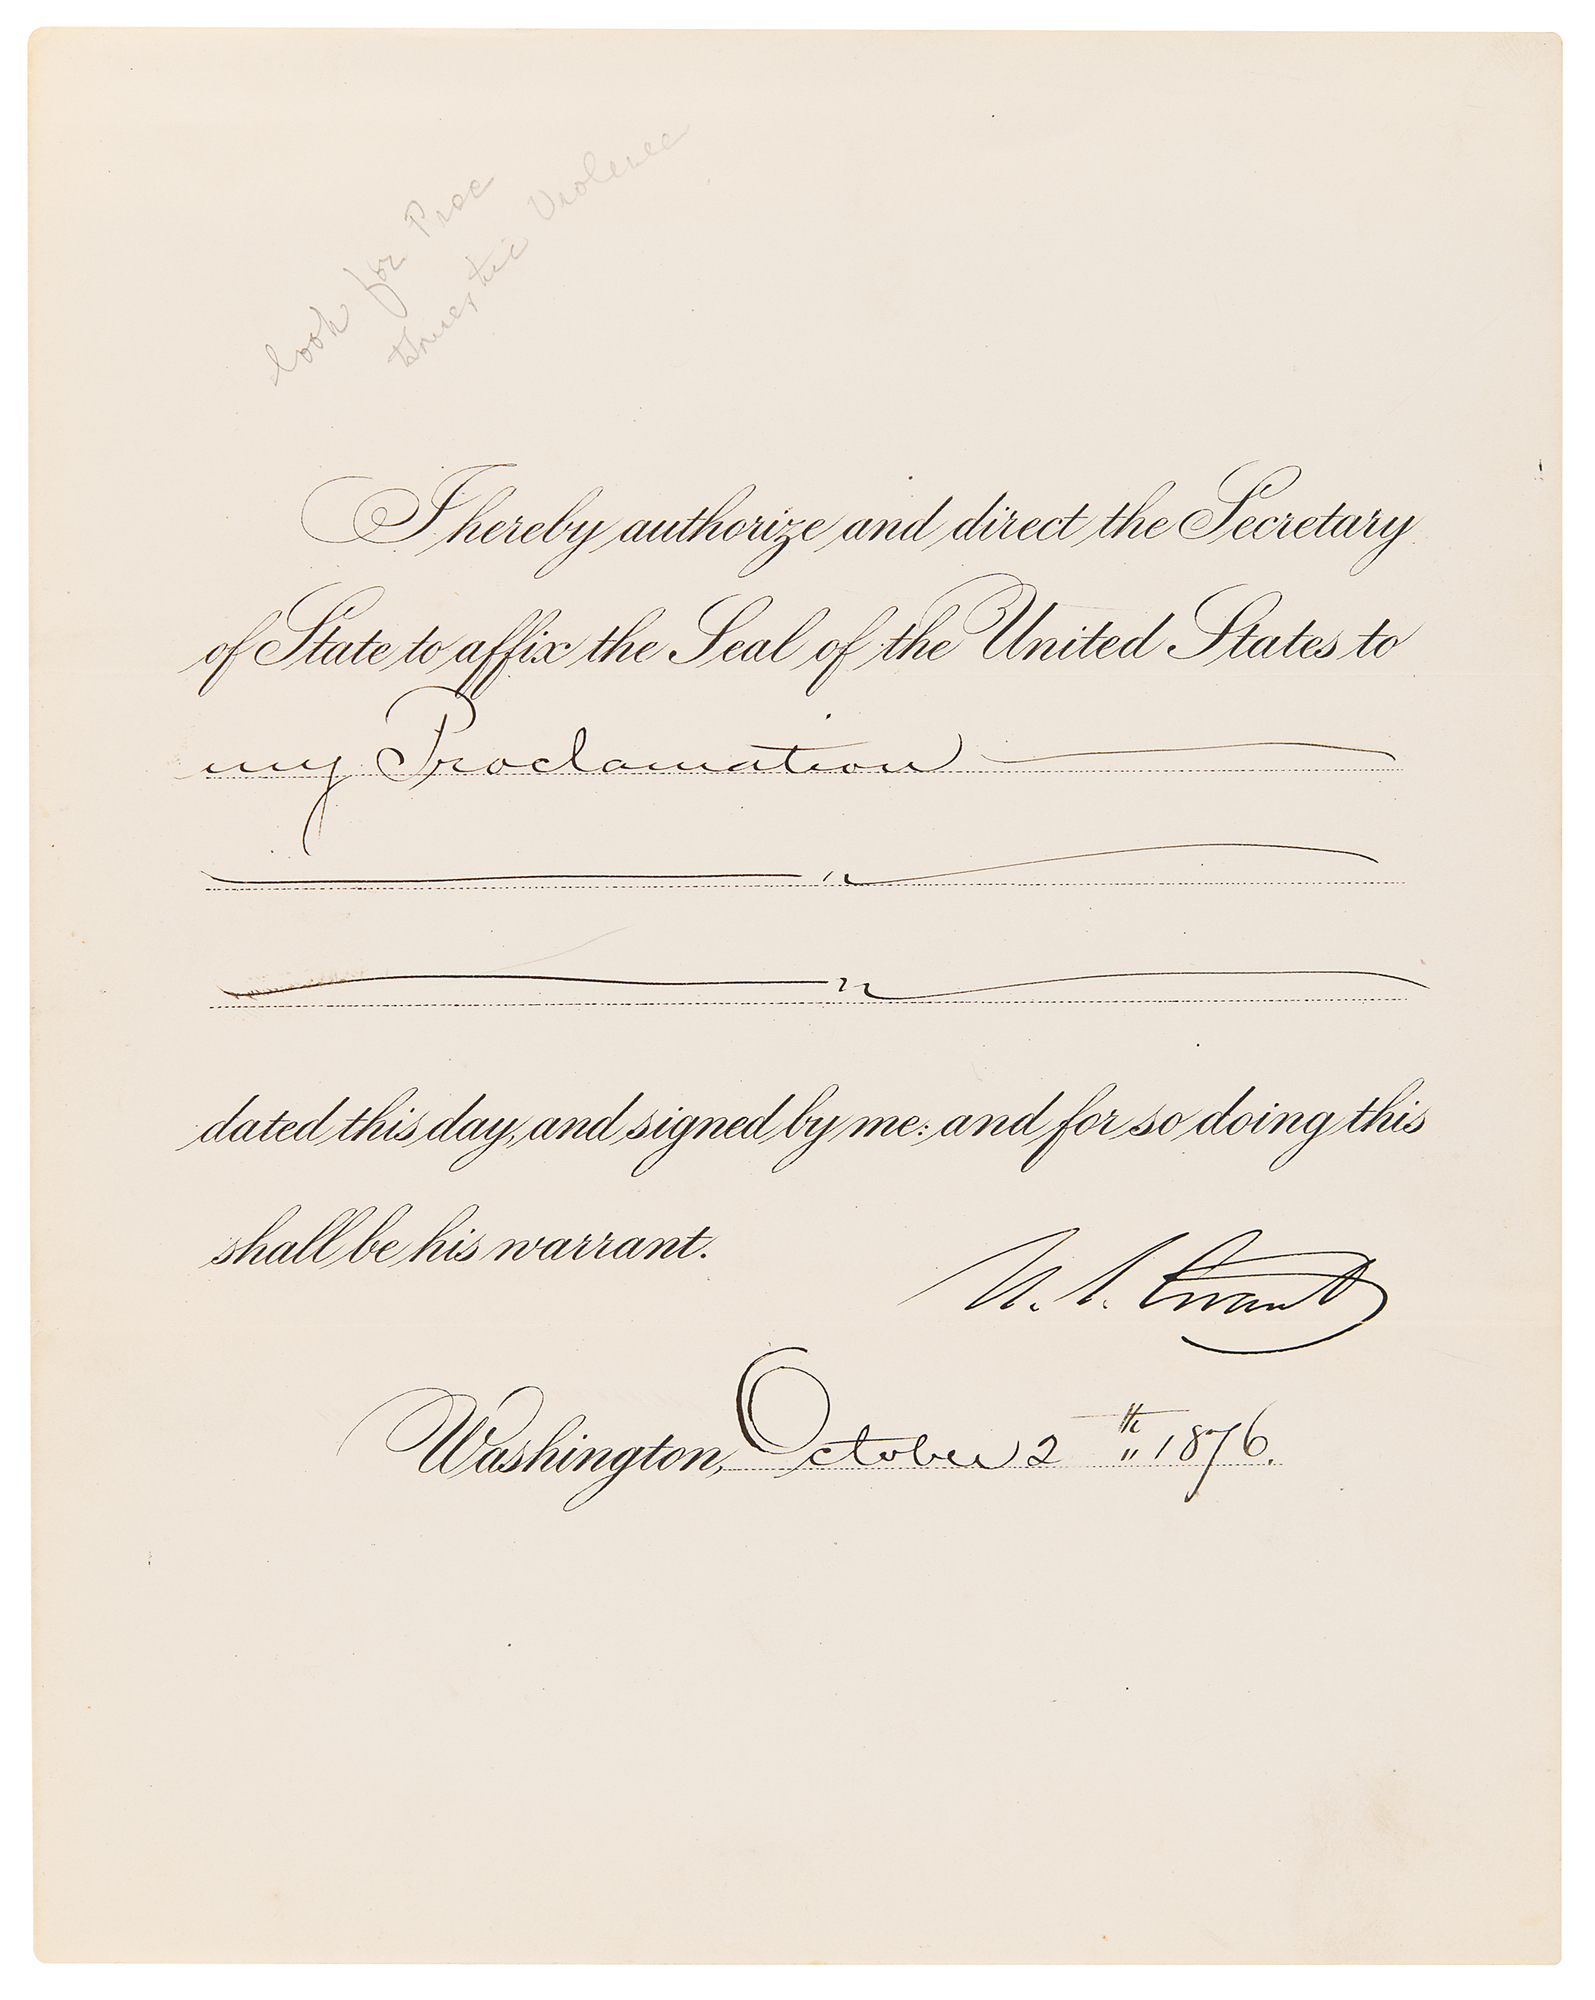 look for Proc
domestic Violence
I hereby authorize and direct the Secretary
of State to affix the Seal of the United States to
my Proclamation
dated this day, and signed by me: and for so doing this
shall be his warrant.
U. S. Grant
Washington, October 2th 1876.